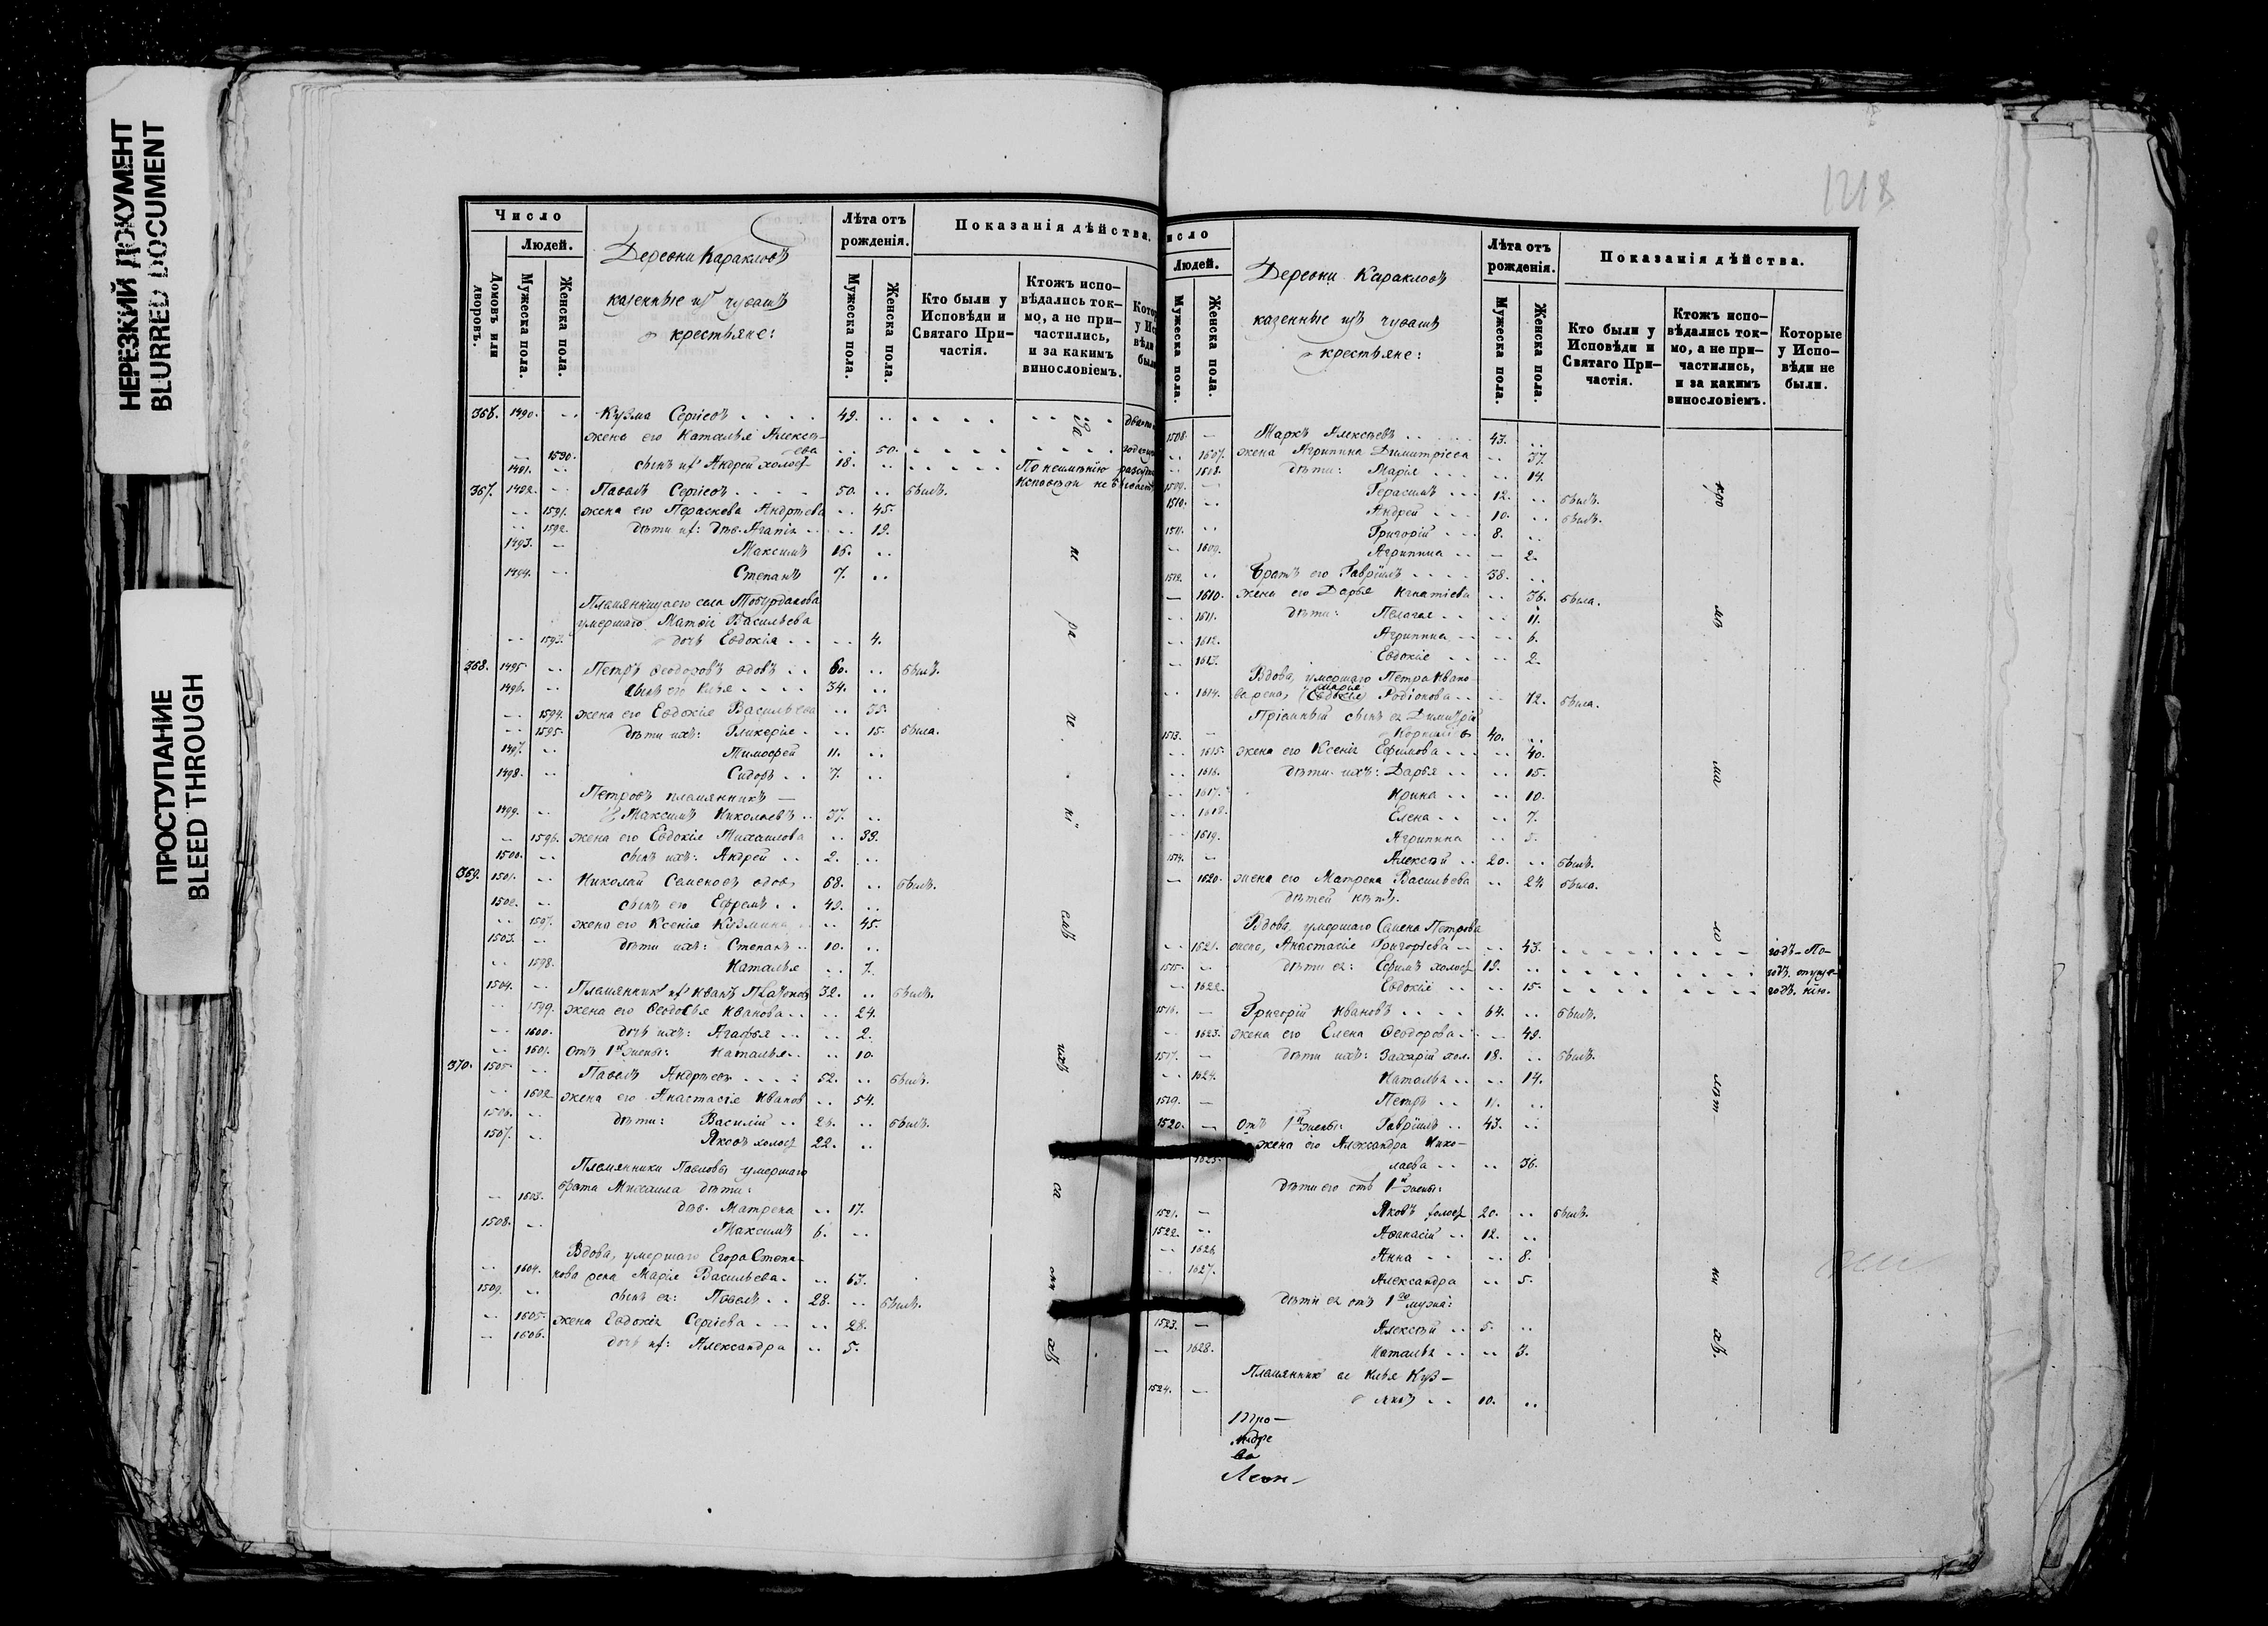 НЕРЕЗКИЙ ДОКУМЕНТ
BLURRED DOCUMENT
ПРОСТУПАНИЕ
BLEED THROUGH
Число
Людей.
Домовъ или дворовъ.
Мужеска пола.
Женска пола.
Деревни Каракловъ
казенные изъ чувашъ
крестьяне:
Лѣта отъ рожденія.
Мужеска пола.
Женска пола.
Показанія дѣйства.
Кто были у Исповѣди и Святаго При-частія.
Ктожъ испо-вѣдались ток-мо, а не при-частились, и за какимъ винословіемъ.
1490. Кузма Сергіевъ 49.
жена его Наталья Алексѣ-
1590. ева 50.
1491. сынъ их Андрей холос 18. По неимѣнію
367. 1492. Павелъ Сергіевъ 50. былъ.
1591. жена его Параскева Андреева 45.
1592. дѣти их: дѣв. Агапія 19.
1493. Максимъ 16.
1494. Степанъ 7.
умершаго Матвія Васильева
1593. дочь Евдокія 4.
368. 1495. Петръ Ѳеодоровъ вдовъ 60. былъ.
1496. сынъ его Илья 34.
1594. жена его Евдокія Васильева 35.
1595. дѣти ихъ: Гликерія 15. была.
1497. Тимофей 11.
1498. Сидоръ 7.
Петровъ племянникъ —
1499. Максимъ Николаевъ 37.
1596. жена его Евдокія Михаилова 33.
1500. сынъ ихъ: Андрей 2.
369. 1501. Николай Семеновъ вдов, 68. былъ.
1502. сынъ его Ефремъ 49.
1597. жена его Ксенія Кузмина 45.
1503. дѣти ихъ: Степанъ 10.
1598. Наталья 7.
1504. Племянник их Иванъ 32. былъ.
1599. жена его Ѳеодосья Иванова 24.
1600. дочь ихъ: Агафья 2.
1601. Отъ 1й жены: Наталья 10.
370. 1505. Павелъ Андреевъ 52. былъ.
1602. жена его Анастасія Иванов 54.
1506. дѣти: Василій 26. былъ.
1507. Яковъ холос 22.
Племянники Павловы умершаго
брата Михаила дѣти:
1603. дѣв. Матрена 17.
1508. Максимъ 6.
Вдова, умершаго Егора Степа-
1604. нова жена Марія Васильева. 63.
1509. сынъ ея: Павелъ 28. былъ.
1605. жена Евдокія Сергіева 28.
1606. дочь их: Александра 5.
1218
Людей.
Мужеска пола.
Женска пола.
Деревни Каракловъ
казенные изъ чувашъ
крестьяне:
Лѣта отъ рожденія.
Мужеска пола.
Женска пола.
Показанія дѣйства.
Кто были у Исповѣди и Святаго При-частія.
Ктожъ испо-вѣдались ток-мо, а не при-частились, и за какимъ винословіемъ.
Которые у Испо-вѣди не были.
1508. Маркъ Алексѣевъ 43.
1607. жена Агрипина Димитріева 37.
1608. дѣти: Марія 14.
1509. Герасимъ 12. былъ.
1510. Андрей 10. былъ.
1511. Григорій 8.
1609. Агрипина 2.
1512. Братъ его Гавріилъ 38.
1610. жена его Дарья Игнатіева 36. была.
1611. дѣти: Пелагея 11.
1612. Агрипина 6.
1613. Евдокія 2.
Вдова, умершаго Петра Ивано-
1614. ва жена, Марія Родіонова 72. была.
Пріемный сынъ ея Димитрій
1513. 40.
1615. жена его Ксенія Ефимова 40.
1616. дѣти ихъ: Дарья 15.
1617. Ирина 10.
1618. Елена 7.
1619. Агрипина 5.
1514. Алексѣй 20. былъ.
1620. жена его Матрена Васильева 24. была.
дѣтей нѣтъ.
Вдова, умершаго Семена Петрова
1621. жена, Анастасія Григорьева 43. годъ – По-
1515. дѣти ея: Ефимъ холос 19. годъ. опуще-
1622. Евдокія 15. годъ. нію.
1516. Григорій Ивановъ 64. былъ.
1623. жена его Елена Ѳеодорова 49.
1517. дѣти ихъ: Захарій хол. 18. былъ.
1624. Наталья 14.
1519. Петръ 11.
1520. Отъ 1й жены: Гавріилъ 43.
жена его Александра Нико-
1625. лаева 36.
дѣти его отъ 1й жены:
1521. Яковъ холос 20. былъ.
1522. Аѳанасій 12.
1626. Анна 8.
1627. Александра 5.
дѣти ея отъ 1го мужа:
1523. Алексѣй 5.
1628. Наталья 3.
Племянник ея Илья Куз-
1524. 10.